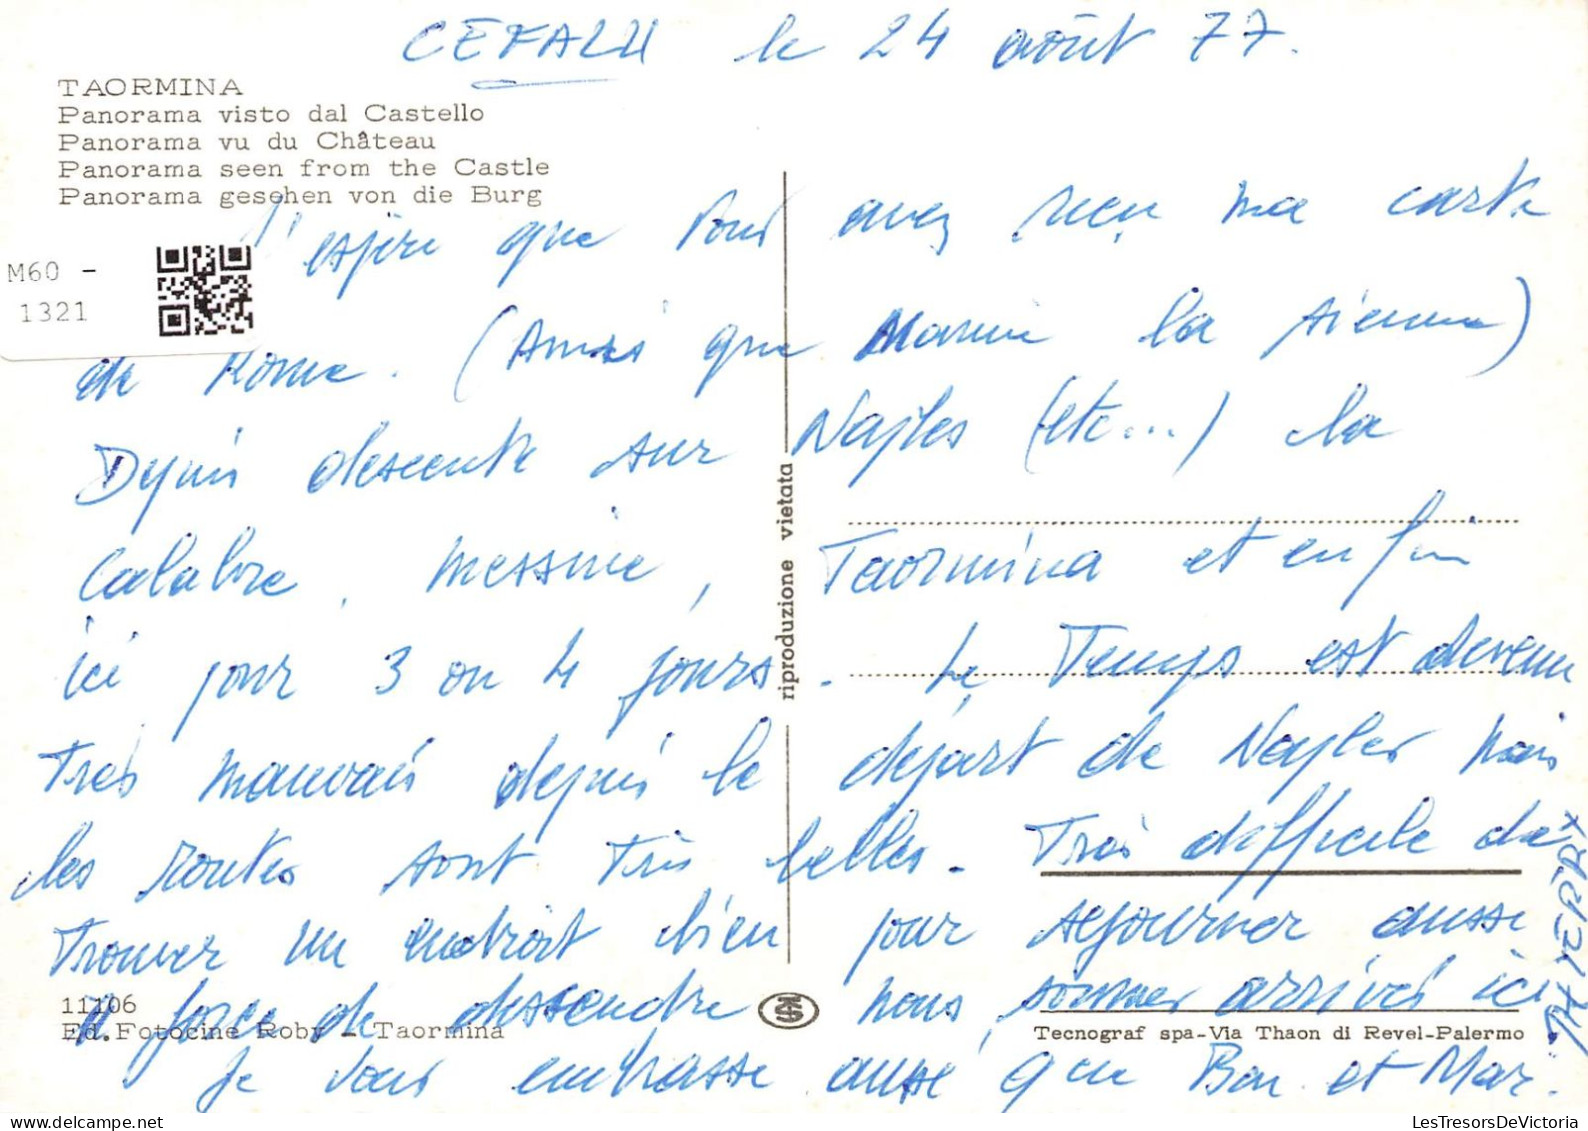 CEFALU le 24 août 77.
TAORMINA
Panorama visto dal Castello
Panorama vu du Château
Panorama seen from the Castle
Panorama gesehen von die Burg
M60 -
1321
J'espère que vous avez reçu ma carte
de Rome. (Ainsi que Mamie la sienne)
Depuis descente sur Naples (etc...) la
Calabre, Messine, Taormina et enfin
ici pour 3 ou 4 jours. Le Temps est devenu
Très mauvais depuis le départ de Naples mais
les routes sont Très belles. Très difficile de
Trouver un endroit bien pour séjourner aussi
à force de descendre nous sommes arrivés ici
Je vous embrasse aussi que Bon et Mar.
THIERRY
riproduzione vietata
11106
Ed. Fotocine Roby - Taormina
Tecnograf spa-Via Thaon di Revel-Palermo
LesTresorsDeVictoria.com